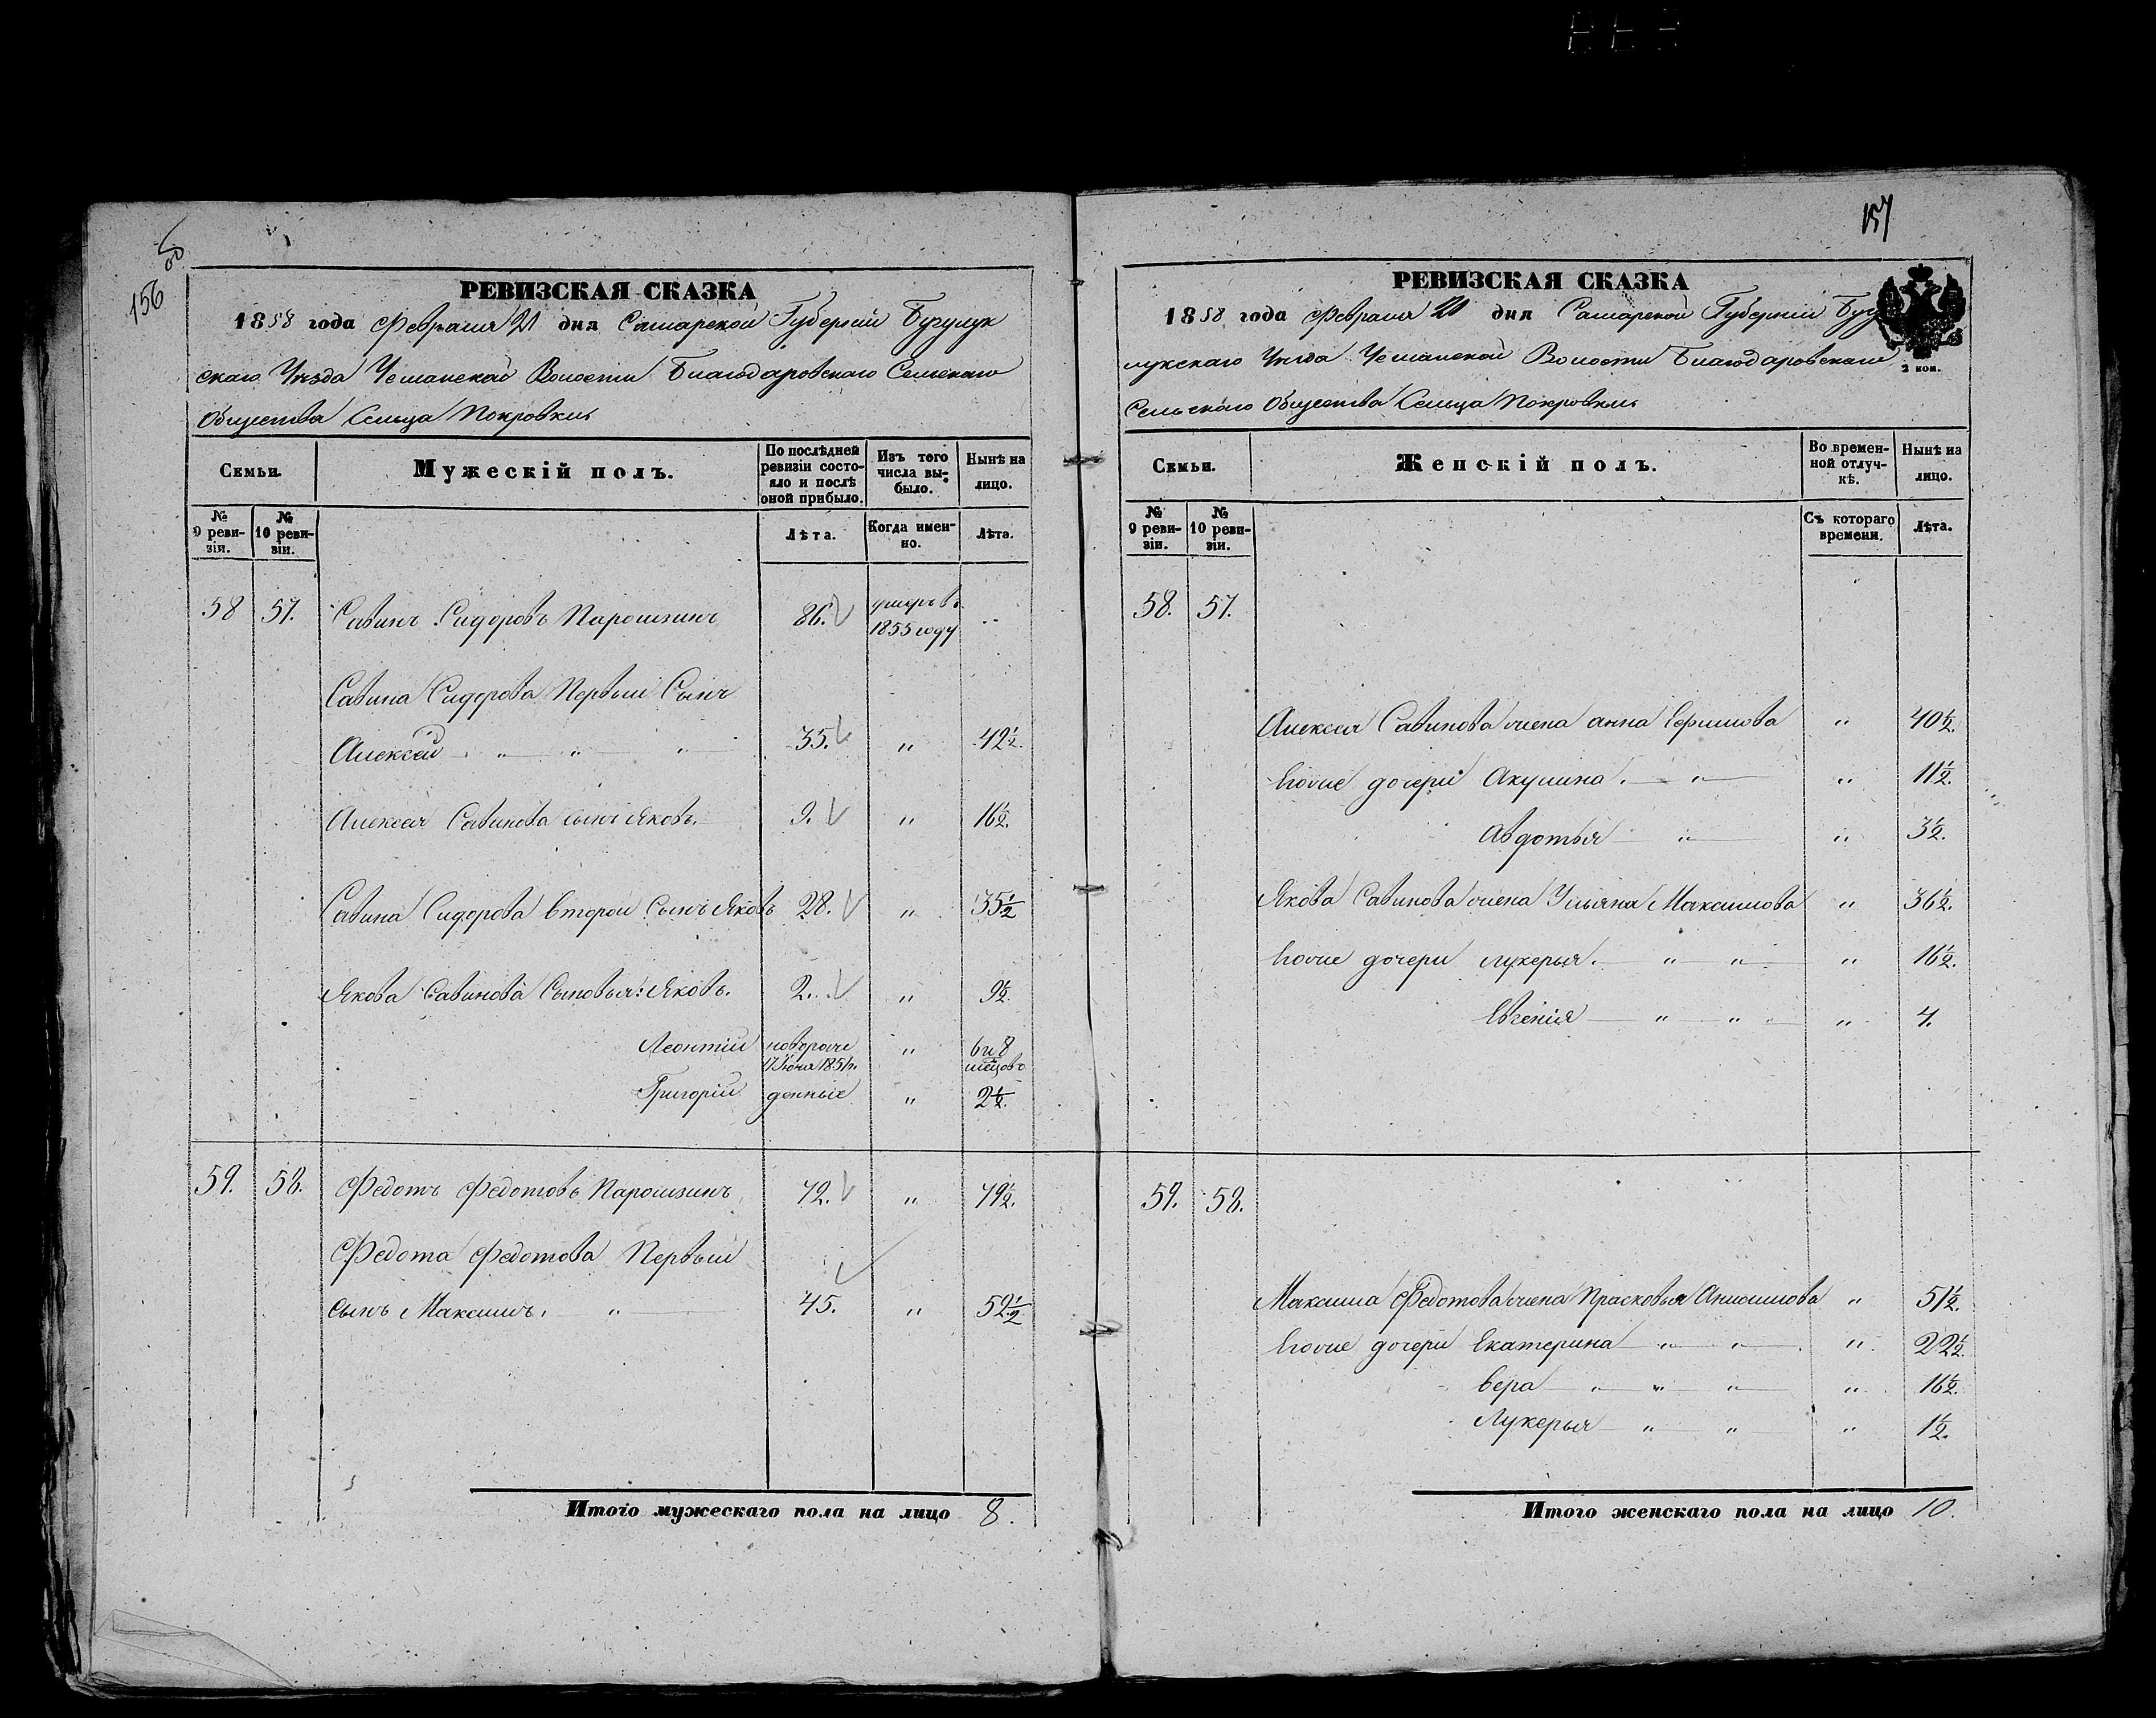 156
157
РЕВИЗСКАЯ СКАЗКА
1858 года Февраля 21 дня Самарской Губернiи Бугулук
скаго Уѣзда Волости Благодаровскаго Сельскаго
Общества Сельца Покровки
Семьи.
Мужескiй полъ.
По послѣдней ревизiи состояло и послѣ оной прибыло.
Изъ того числа выбыло.
Нынѣ на лицо.
№ 9 ревизiи.
№ 10 ревизiи.
Лѣта.
Когда именно.
Лѣта.
58 57. Савинъ Сидоровъ Парошзинъ 86. умеръ въ 1855 году
Савина Сидорова Первый Сынъ
Алексей " " " 35. " 42½.
Алексея Савинова сынъ Яковъ. 9. " 16½.
Савина Сидорова второй Сынъ Яковъ 28. " 35½
Якова Савинова Сыновья: Яковъ. 2. " 9½.
Леонтiй новорож 17 Iюня 1851 г. " 6 и 8 месецовъ
Григорiй денные " 2½.
59. 58. Федотъ Федотовъ Парошзинъ 72. " 79½.
Федота Федотова Первый
сынъ Максимъ. " 45. " 52½.
Итого мужескаго пола на лицо 8.
РЕВИЗСКАЯ СКАЗКА
1858 года Февраля 21 дня Самарской Губернiи Бугу
лукскаго Уѣзда Волости Благодаровскаго
Сельскаго Общества Сельца Покровки
2 коп.
Семьи.
Женскiй полъ.
Во временной отлучкѣ.
Нынѣ на лицо.
№ 9 ревизiи.
№ 10 ревизiи.
Съ котораго времени.
Лѣта.
58. 57.
Алексея Савинова жена анна Ефимова " 40½.
Ихние дочери Акулина. " " 11½.
Авдотья " " 3½.
Якова Савинова жена Ульяна Максимова " 36½.
Ихние дочери лукерья. " " " 16½.
Евгенiя " " " 4.
59. 58.
Максима Федотова жена Прасковья Анисимова " 51½.
Ихние дочери Екатерина " " " 22½.
Вера " " " " 16½.
Лукерья " " " 1½.
Итого женскаго пола на лицо 10.